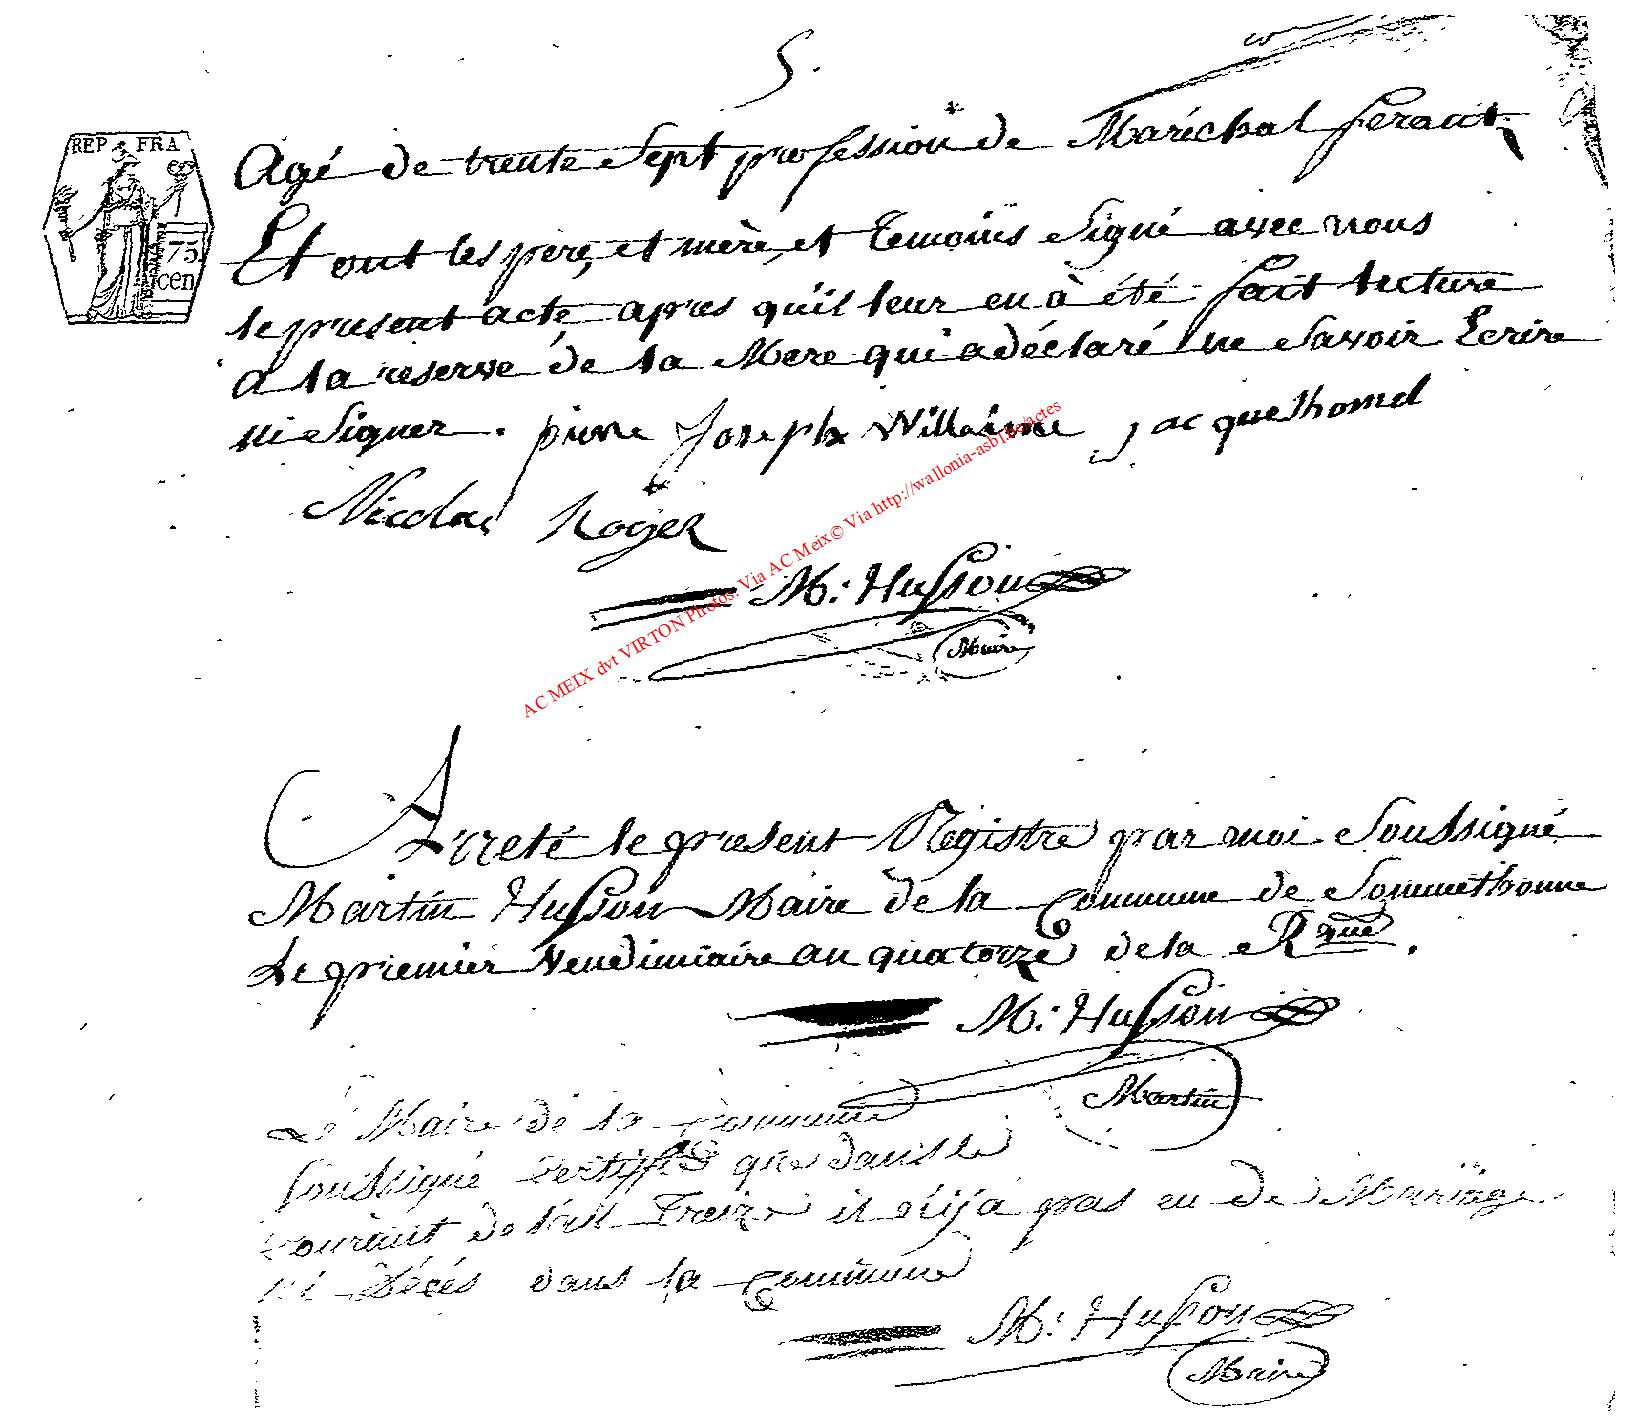 5.
REP FRA
75
cen
Agé de trente Sept profession de Maréchal ferant
Et ont les père, et mère, et temoins Signé avec nous
le present acte apres quil leur en à été fait lecture
a la reserve de la Mere qui a déclaré ne Savoir Ecrire
ni Signer. pierre Joseph Willaime jacque thomel
Nicolas Roger
M: Husson
Maire
AC MEIX dvt VIRTON Photos. Via AC Meix© Via http://wallonia-asbl.be/actes
Arreté le present Registre par moi Soussigné
Martin Husson Maire de la Commune de Sommethonne
Le premier Vendimiaire an quatorze de la Rque.
M: Husson
Martin
Le Maire de la Commune
Soussigné Certiffie que dans le
Courant de l'an Treize il n'ija pas eu de Mariage
ni Décés dans la Commune
M: Husson
Maire